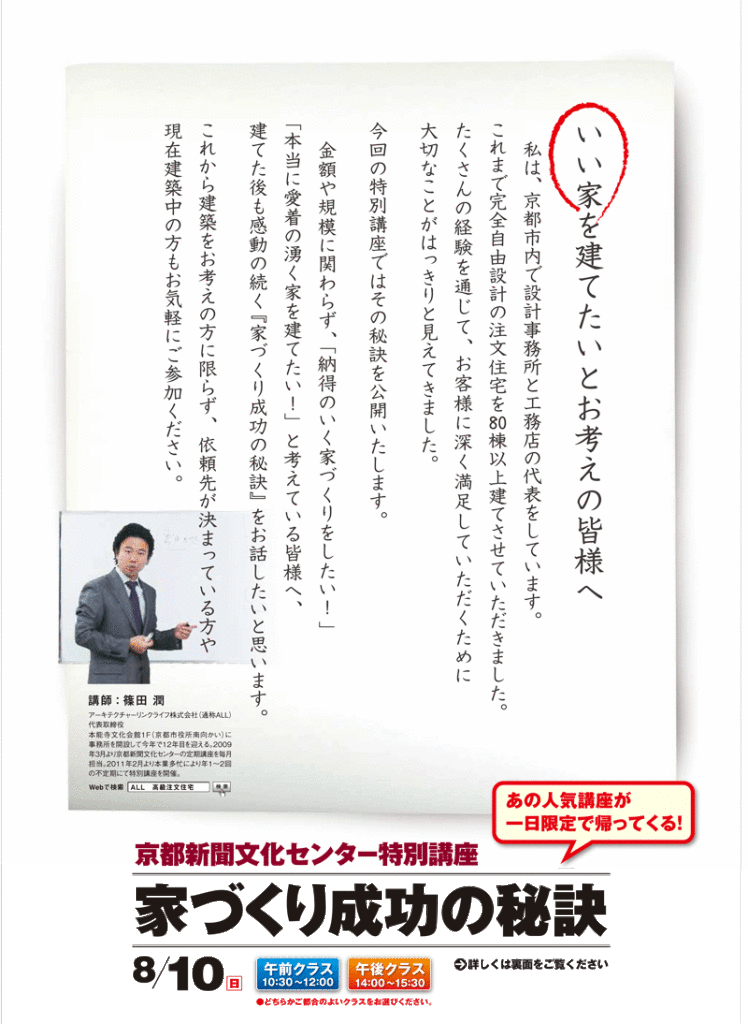 いい家を建てたいとお考えの皆様へ
私は、京都市内で設計事務所と工務店の代表をしています。
これまで完全自由設計の注文住宅を80棟以上建てさせていただきました。
たくさんの経験を通じて、お客様に深く満足していただくために
大切なことがはっきりと見えてきました。
今回の特別講座ではその秘訣を公開いたします。
金額や規模に関わらず、「納得のいく家づくりをしたい！」
「本当に愛着の湧く家を建てたい！」と考えている皆様へ、
建てた後も感動の続く『家づくり成功の秘訣』をお話したいと思います。
これから建築をお考えの方に限らず、依頼先が決まっている方や
現在建築中の方もお気軽にご参加ください。
講師：篠田 潤
アーキテクチャーリンクライフ株式会社（通称ALL）
代表取締役
本能寺文化会館1F（京都市役所南向かい）に
事務所を開設して今年で12年目を迎える。2009
年3月より京都新聞文化センターの定期講座を毎月
担当。2011年2月より本業多忙により年1〜2回
の不定期にて特別講座を開催。
Webで検索 ALL 高級注文住宅 検索
あの人気講座が
一日限定で帰ってくる!
京都新聞文化センター特別講座
家づくり成功の秘訣
8/10日
午前クラス
10:30〜12:00
午後クラス
14:00〜15:30
詳しくは裏面をご覧ください
●どちらかご都合のよいクラスをお選びください。